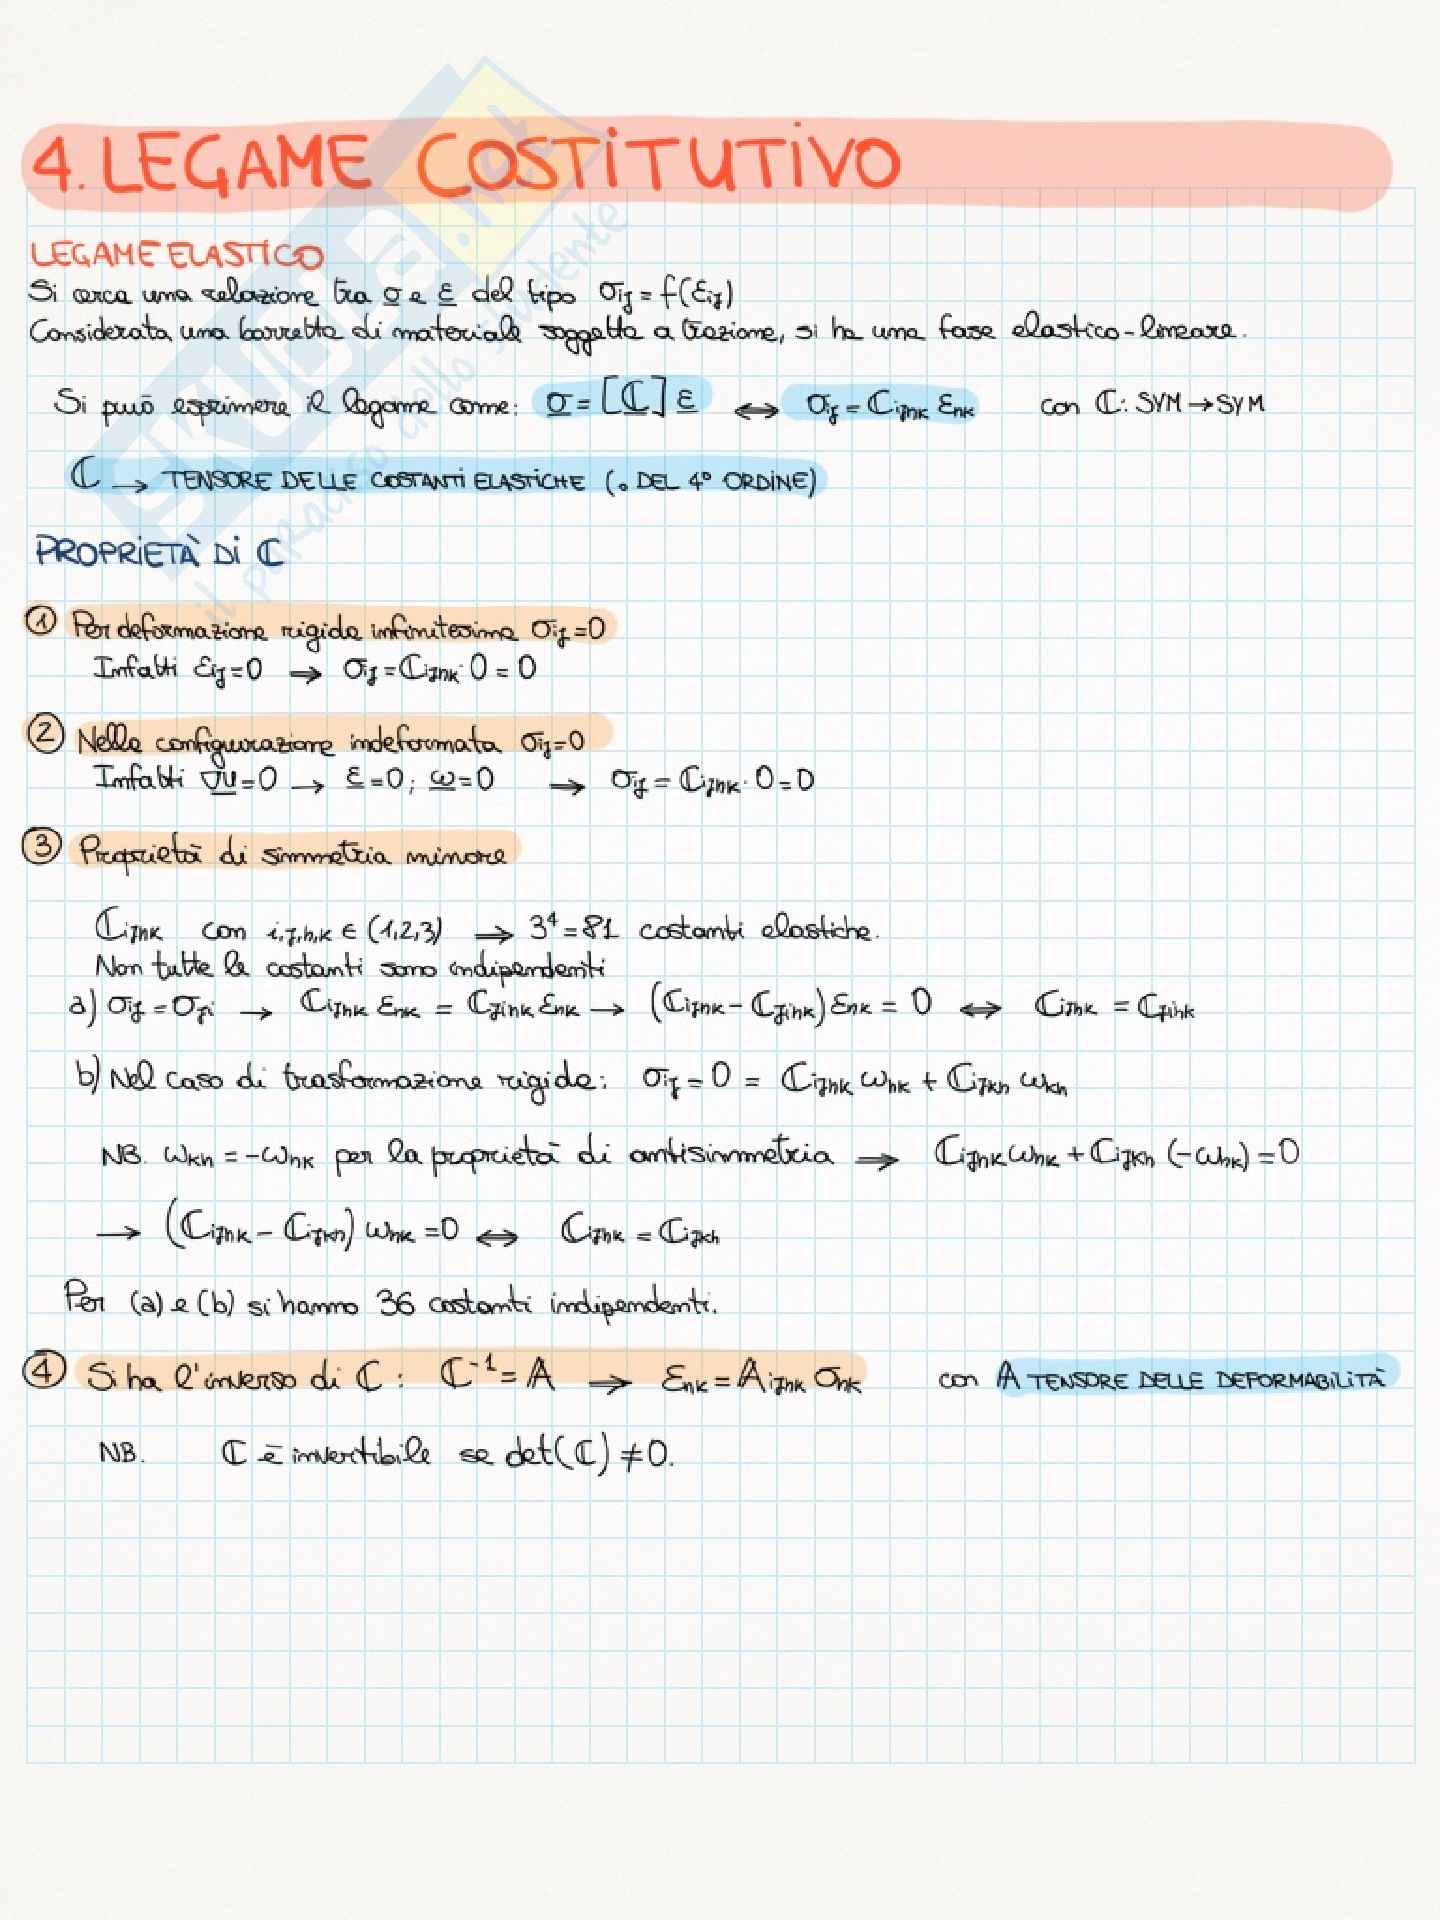 4. LEGAME COSTITUTIVO
LEGAME ELASTICO
Si cerca una relazione tra σ e ε del tipo σij = f(εij)
Considerata una barretta di materiale soggetta a trazione, si ha una fase elastico-lineare.
Si può esprimere il legame come: σ = [ℂ] ε ⟺ σij = ℂijhk εhk con ℂ: SYM → SYM
ℂ → TENSORE DELLE COSTANTI ELASTICHE (. DEL 4° ORDINE)
PROPRIETÀ DI ℂ
① Per deformazione rigida infinitesima σij = 0
Infatti εij = 0 ⇒ σij = ℂijhk · 0 = 0
② Nella configurazione indeformata σij = 0
Infatti ∇u = 0 → ε = 0; ω = 0 ⇒ σij = ℂijhk · 0 = 0
③ Proprietà di simmetria minore
ℂijhk con i,j,h,k ∈ (1,2,3) ⇒ 3⁴ = 81 costanti elastiche.
Non tutte le costanti sono indipendenti
a) σij = σji → ℂijhk εhk = ℂjihk εhk → (ℂijhk - ℂjihk) εhk = 0 ⟺ ℂijhk = ℂjihk
b) Nel caso di trasformazione rigida: σij = 0 = ℂijhk ωhk + ℂijkh ωkh
NB. ωkh = -ωhk per la proprietà di antisimmetria ⇒ ℂijhk ωhk + ℂijkh (-ωhk) = 0
→ (ℂijhk - ℂijkh) ωhk = 0 ⟺ ℂijhk = ℂijkh
Per (a) e (b) si hanno 36 costanti indipendenti.
④ Si ha l'inverso di ℂ: ℂ⁻¹ = 𝔸 ⇒ εhk = 𝔸ijhk σhk con 𝔸 TENSORE DELLE DEFORMABILITÀ
NB. ℂ è invertibile se det(ℂ) ≠ 0.
SKUOLA.net
il paradiso dello studente